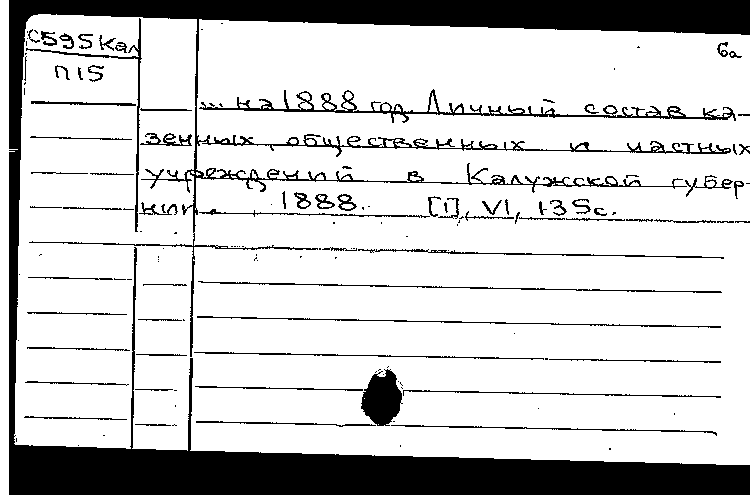 С595Кал
6а
П15
... на 1888 год. Личный состав ка-
зенных, общественных и частных
учреждений в Калужской губер-
нии. 1888. [1], VI, 135с.